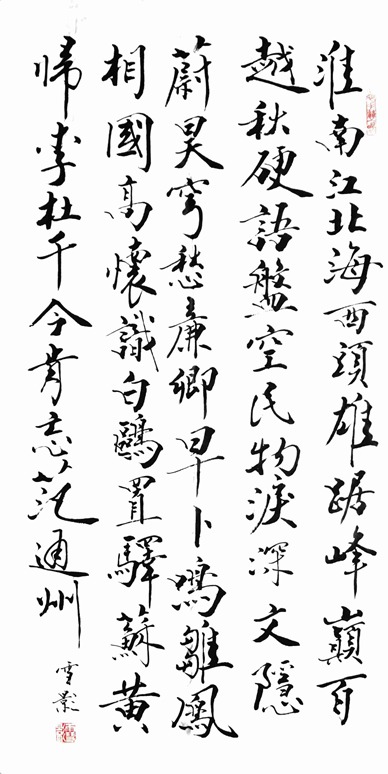 淮南江北海西頭雄踞峰巔百
越秋硬語盤空民物淚深文隱
蔚昊穹愁廉卿早卜鳴雛鳳
相國高懷識白鷗置驛蘇黃
歸李杜于今肯忘范通州
雪